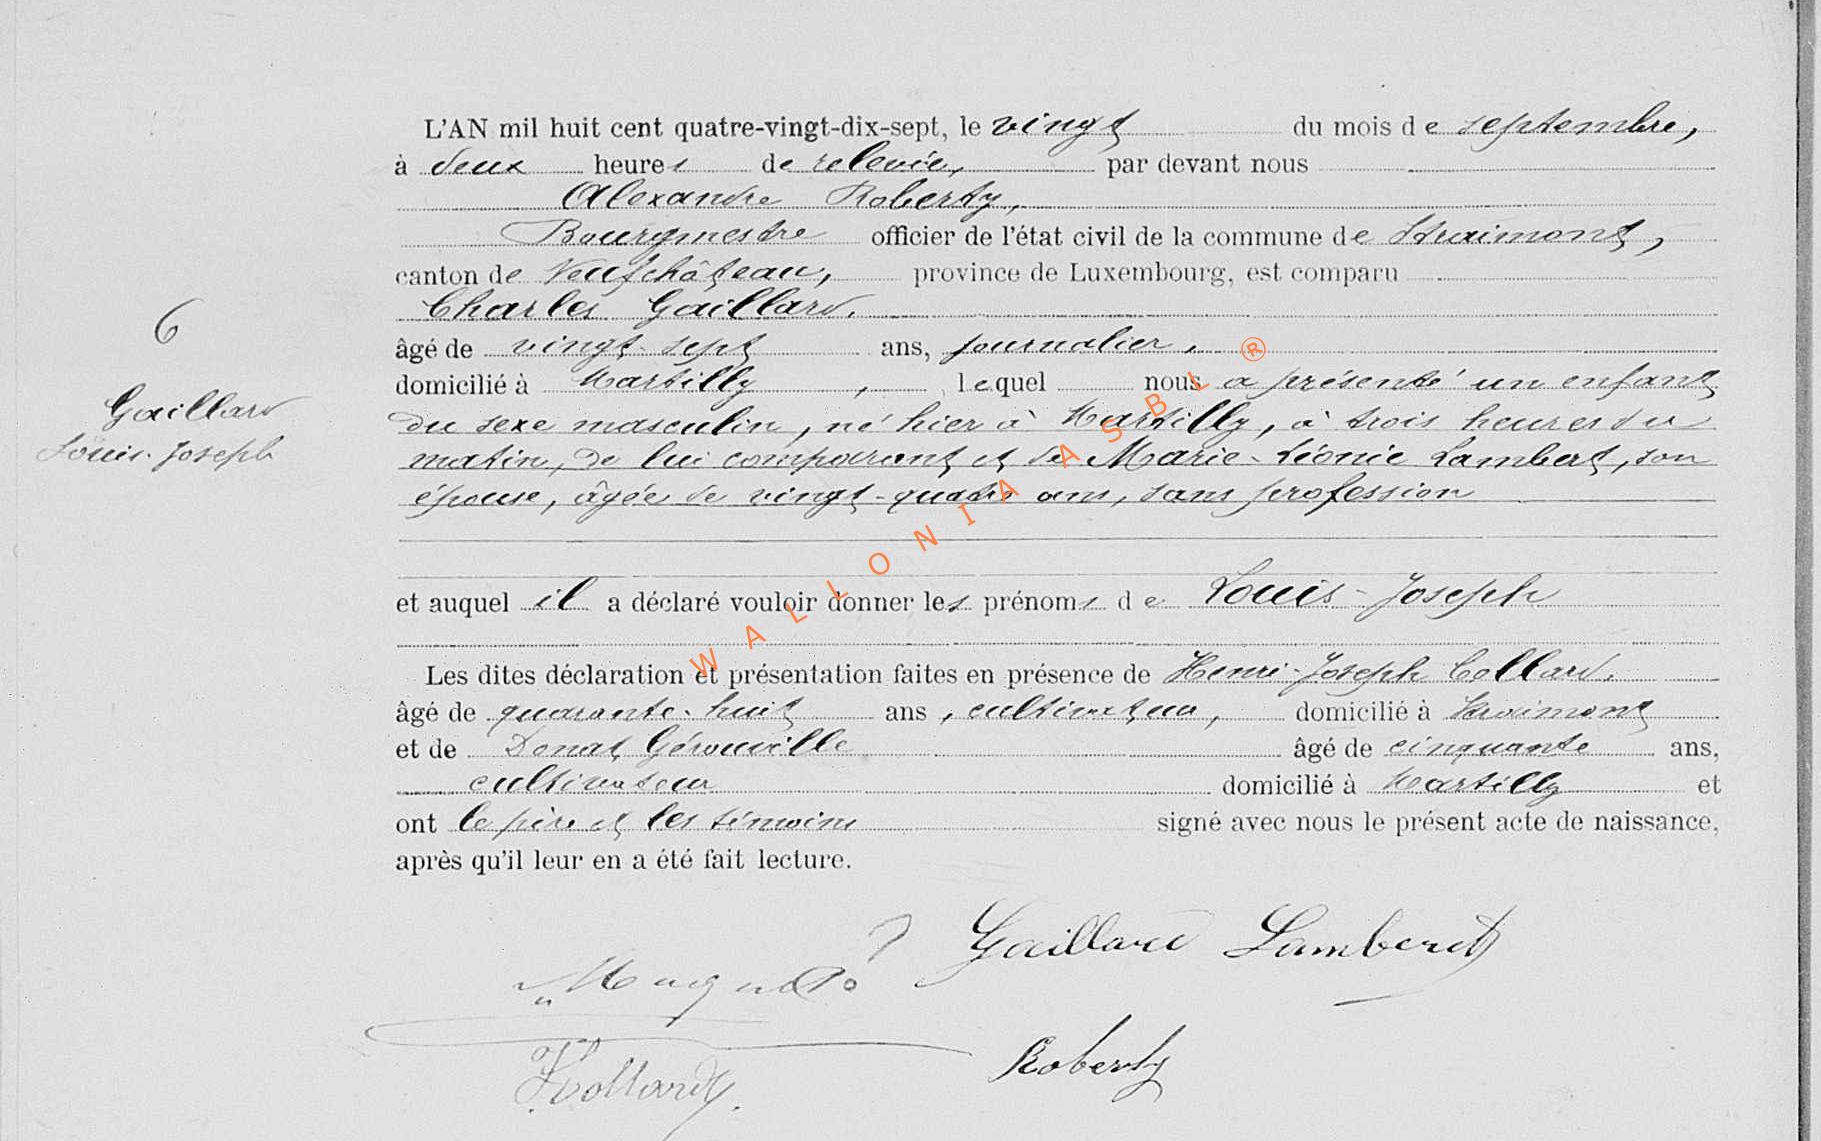 L'AN mil huit cent quatre-vingt-dix-sept, le vingt du mois de septembre,
à deux heures de relevée, par devant nous
Alexandre Roberty,
Bourgmestre officier de l'état civil de la commune de Straimont,
canton de Neufchâteau, province de Luxembourg, est comparu
Charles Gaillard.
6
âgé de vingt-sept ans, journalier,
domicilié à Martilly, lequel nous a présenté un enfant
Gaillard
du sexe masculin, né hier à Martilly, à trois heures du
Louis-Joseph
matin, de lui comparant et de Marie-Léonie Lambert, son
épouse, âgée de vingt-quatre ans, sans profession
et auquel il a déclaré vouloir donner les prénoms de Louis-Joseph
Les dites déclaration et présentation faites en présence de Henri-Joseph Collard.
âgé de quarante-huit ans, cultivateur, domicilié à Straimont
et de Donat Gérouville âgé de cinquante ans,
cultivateur domicilié à Martilly et
ont le père et les témoins signé avec nous le présent acte de naissance,
après qu'il leur en a été fait lecture.
Gaillard Lambert
Roberty
WALLONIA ASBL ®